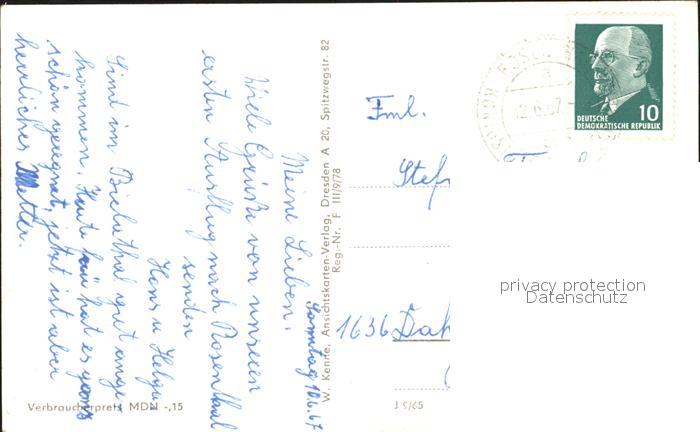 Sonntag 10.6.67
Meine Lieben.
Viele Grüße von unseren
ersten Ausflug nach Rosenthal
senden
Hans u. Helga
Sind im Bielatal gut ange-
kommen. Heute früh hat es ganz
schön geregnet, jetzt ist aber
herrliches Wetter.
Verbraucherpreis MDN -,15
W. Kenne, Ansichtskarten-Verlag, Dresden A 20, Spitzwegstr. 82
Reg.-Nr. F III/9/78
10
DEUTSCHE
DEMOKRATISCHE REPUBLIK
Fml.
Stef
1636 Dah
J 5/65
privacy protection
Datenschutz